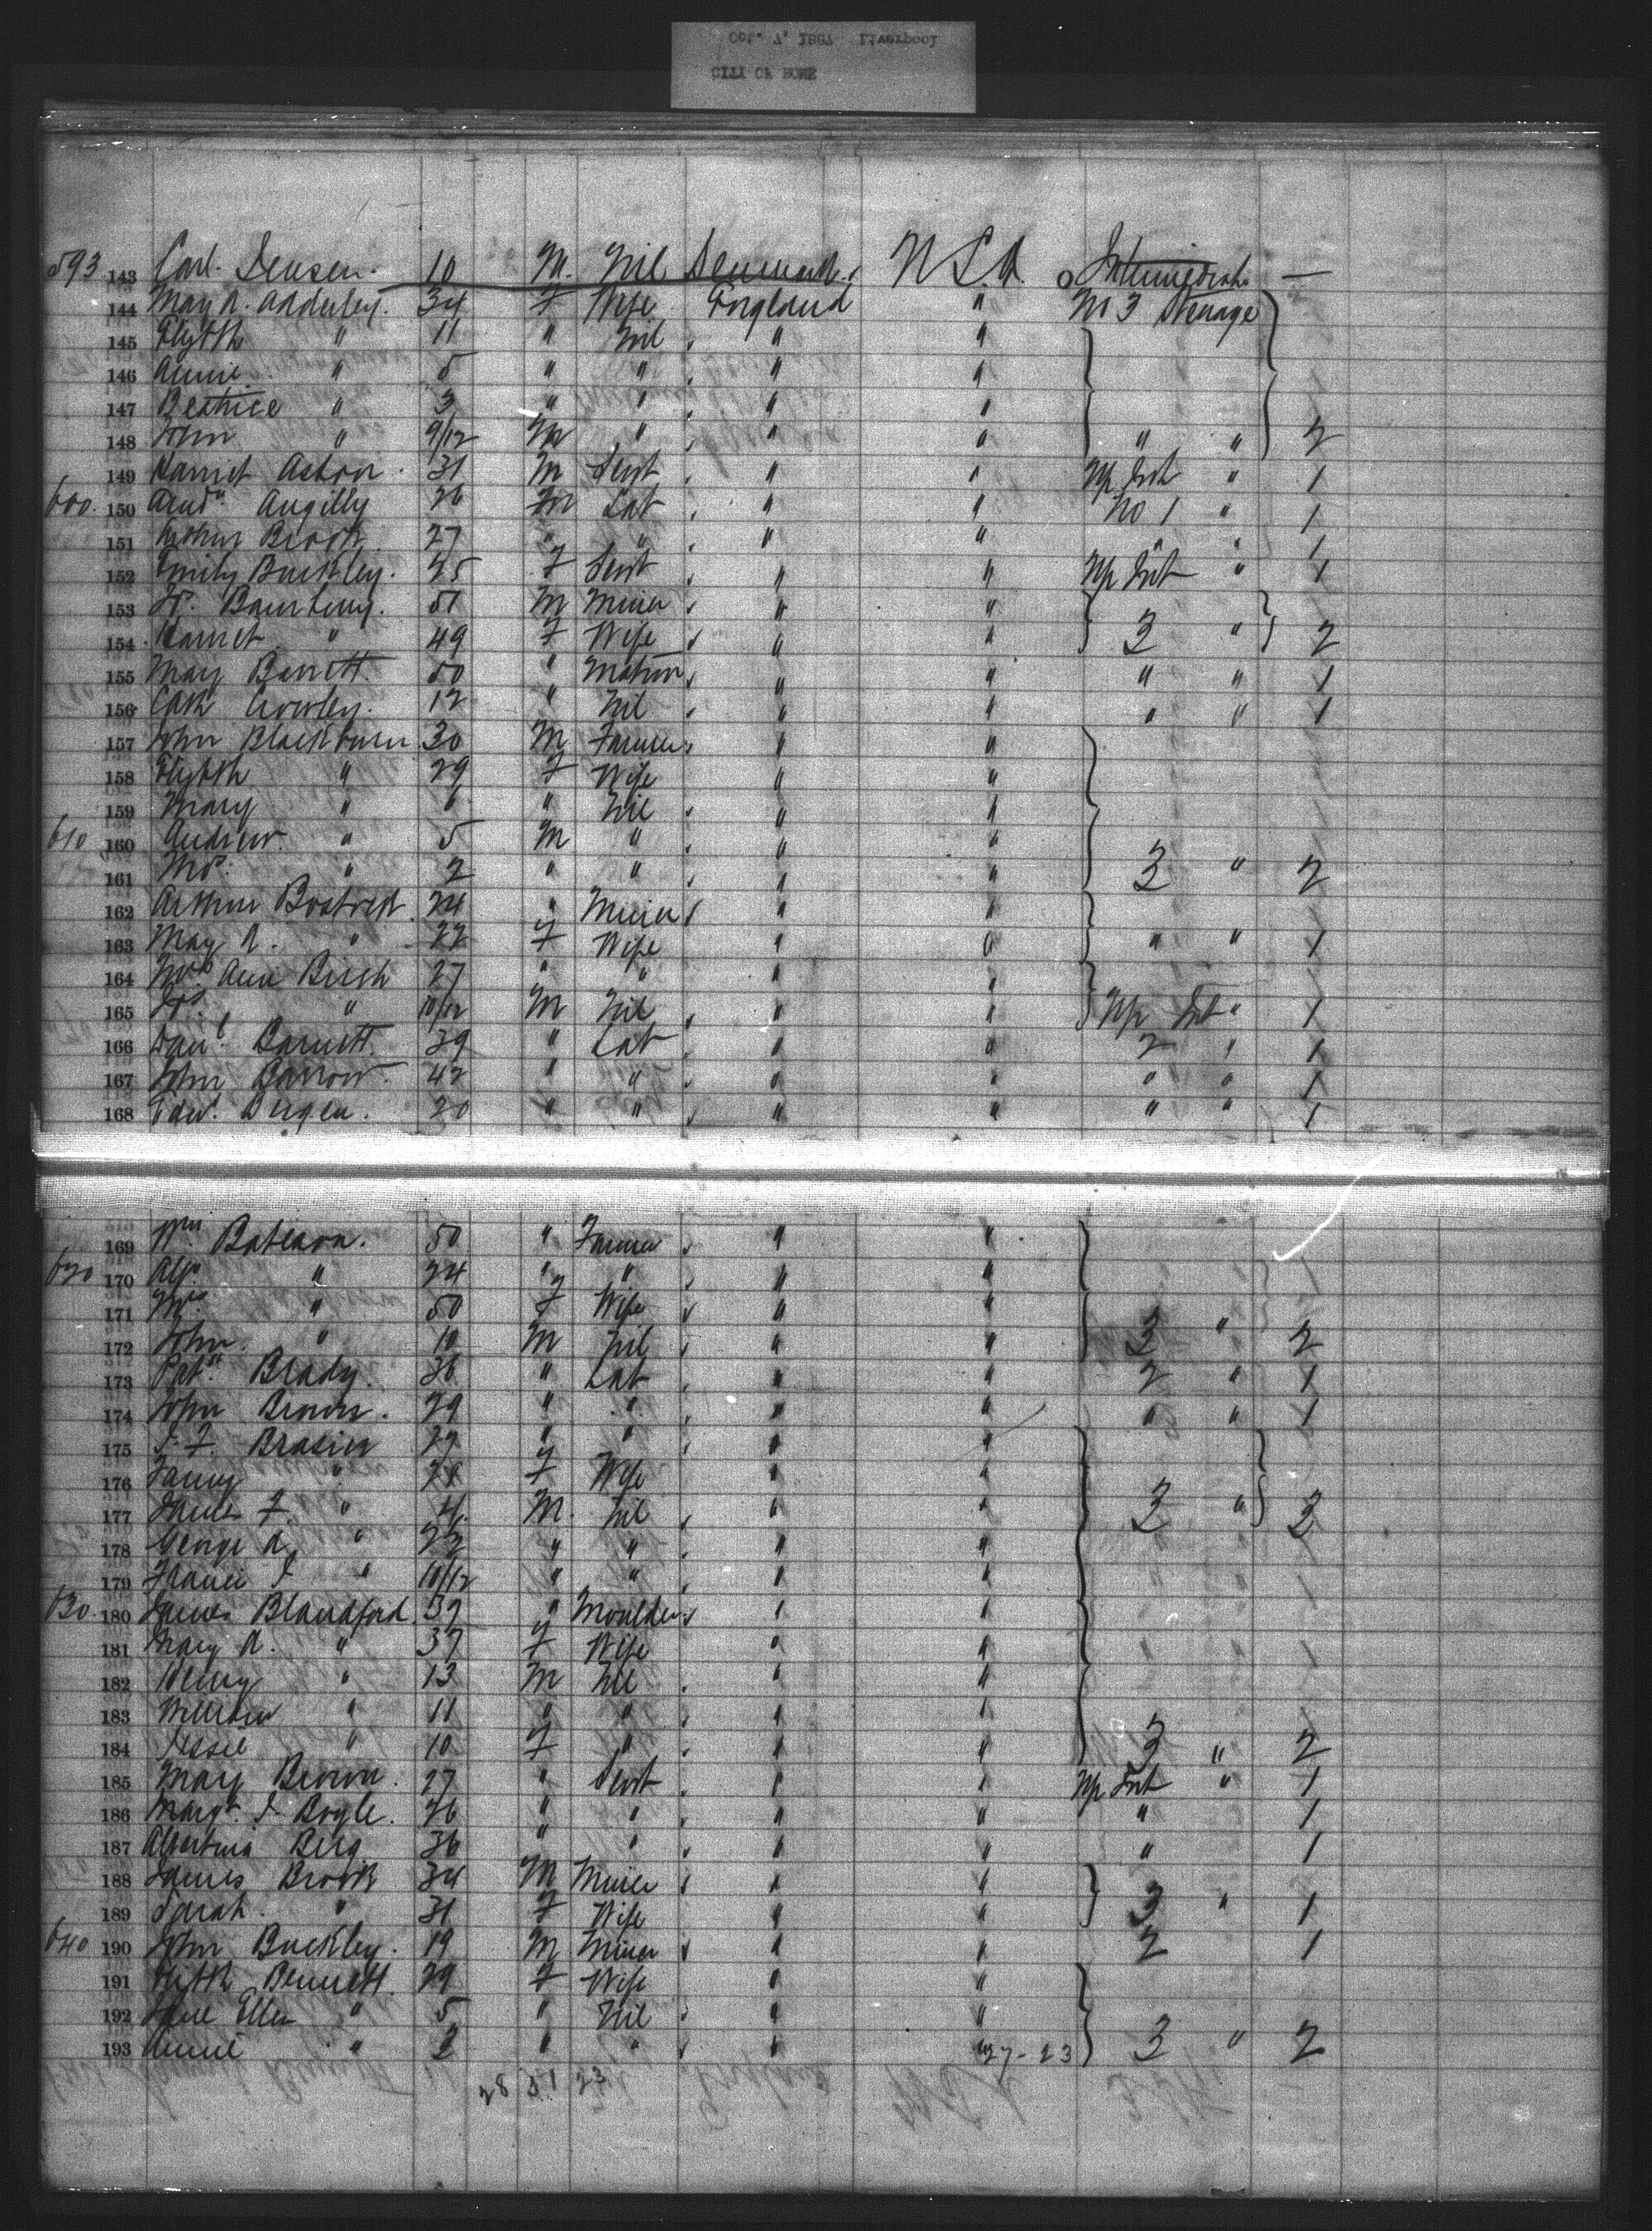 Oct. 7, 1887 Liverpool
CITY OF ROME
593 143 Carl Jensen. 10 M. Nil Denmark. U.S.A. Intermediate —
144 Mary A. Adderley. 34 F Wife England " No 3 Steerage
145 Elyth " 11 " Nil " "
146 Annie " 5 " " " "
147 Beatrice " 3 " " " "
148 John " 9/12 M " " " " " 2
149 Harriet Aston. 31 M Servt " " Up Int " 1
600. 150 Andw Angilly 26 M Lab " " No 1 " 1
151 Arthur Brook 27 " " " " " " 1
152 Emily Buckley. 25 F Servt " " Up Int " 1
153 51 M Miner " "
154 Harriet " 49 F Wife " " 3 " 2
155 Mary Barrett. 50 " Matron " " " " 1
156 Cath 12 " Nil " " " " 1
157 John Blackburn 30 M Farmer " "
158 Elyth " 29 F Wife " "
159 Mary " 6 " Nil " "
610 160 Andrew. " 5 M " " "
161 " 2 " " " " 3 " 2
162 Arthur 24 " Miner " "
163 Mary A. " 22 F Wife " " " " 1
164 Mrs Ann Birch 27 " " " "
165 Js. " 10/12 M Nil " " Up Int " 1
166 Danl. Barnett. 39 " Lab " " 2 " 1
167 John Barrow. 42 " " " " " " 1
168 Edwd. Bergen. 20 " " " " " " 1
169 Wm Bateson. 50 " Farmer " "
620 170 Alf. " 24 " " " "
171 Mrs. " 50 F Wife " "
172 John. " 10 M Nil " " 3 " 2
173 Patk. Brady. 36 " Lab " " 2 " 1
174 John Brown. 29 " " " " " " 1
175 J. F. Brasier 27 " " " "
176 Fanny " F Wife " "
177 James F. " 4 M. Nil " " 3 " 3
178 George A. " " " " "
179 Francis J " 10/12 " " " "
630. 180 James Blandford. 37 " Moulder " "
181 Mary A. " 37 F Wife " "
182 Henry " 13 M Nil " "
183 William " 11 " " " "
184 Jessie " 10 F " " " 3 " 2
185 Mary Brown. 27 " Servt " " Up Int " 1
186 Margt. J. Boyle. 26 " " " " " 1
187 Albertina Berg 36 " " " " " 1
188 James Brook 34 M Miner " "
189 Sarah. " 31 F Wife " " 3 " 1
640 190 John Buckley. 19 M Miner " " 2 1
191 Elizth Bennett. 29 F Wife " "
192 Jane Ellen " 5 " Nil " "
193 Annie " 2 " " " " 27-23 3 " 2
28 51 23